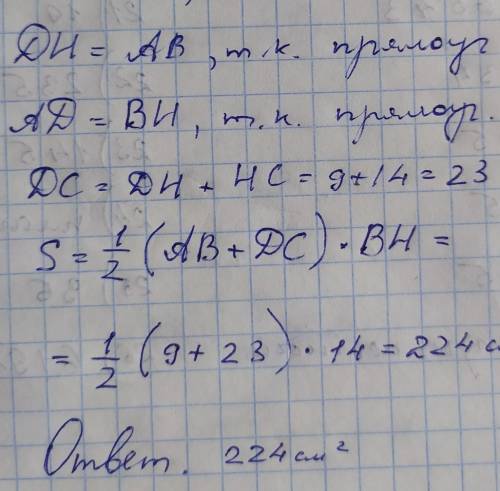 DH = AB, т.к. прямоуг
AD = BH, т.к. прямоуг.
DC = DH + HC = 9+14 = 23
S = 1/2 (AB + DC) · BH =
= 1/2 (9 + 23) · 14 = 224 с
Ответ. 224 см²